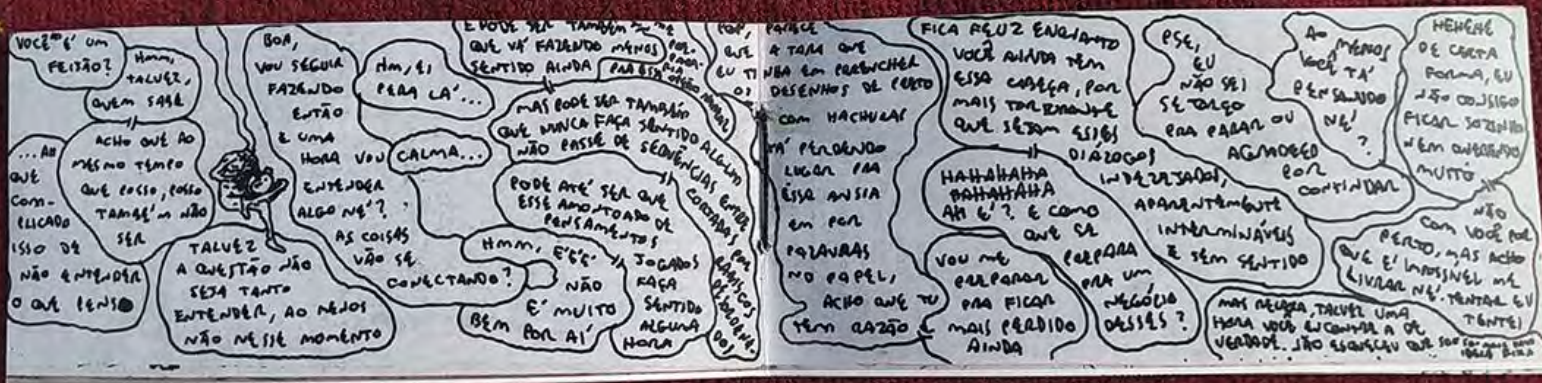 VOCÊ É UM
FEIJÃO?
HMM,
TALVEZ,
QUEM SABE
ACHO QUE AO
MESMO TEMPO
QUE POSSO, POSSO
TAMBÉM NÃO
SER
... AH
QUE
COM-
PLICADO
ISSO DE
NÃO ENTENDER
O QUE PENSO
TALVEZ
A QUESTÃO NÃO
SEJA TANTO
ENTENDER, AO MENOS
NÃO NESSE MOMENTO
BOA,
VOU SEGUIR
FAZENDO
ENTÃO
E UMA
HORA VOU
ENTENDER
ALGO NÉ?
AS COISAS
VÃO SE
CONECTANDO?
HM, EI,
PERA LÁ...
CALMA...
HMM,
É'É'É'
NÃO
É MUITO
BEM POR AÍ
E PODE SER TAMBÉM
QUE VÁ FAZENDO MENOS
SENTIDO AINDA
MAS PODE SER TAMBÉM
QUE NUNCA FAÇA SENTIDO ALGUM
NÃO PASSE DE SEQUÊNCIAS ENTRE
CORTADAS POR
RABISCOS
DESORDENA-
DOS
PODE ATÉ SER QUE
ESSE AMONTOADO DE
PENSAMENTOS
JOGADOS
FAÇA
SENTIDO
ALGUMA
HORA
QUE
EU TINHA EM PREENCHER
PARECE
A TARA QUE
DESENHOS DE PRETO
COM HACHURAS
TÁ PERDENDO
LUGAR PRA
ESSA ANSIA
EM POR
PALAVRAS
NO PAPEL,
ACHO QUE TU
TEM RAZÃO
FICA FELIZ ENQUANTO
VOCÊ AINDA TEM
ESSA CABEÇA, POR
MAIS TORTURANTE
QUE SEJAM ESSES
DIÁLOGOS
INDESEJADOS,
APARENTEMENTE
INTERMINÁVEIS
E SEM SENTIDO
HAHAHAHA
BAHAHAHA
AH É? E COMO
QUE SE
PREPARA
PRA UM
NEGÓCIO
DESSES?
VOU ME
PREPARAR
PRA FICAR
MAIS PERDIDO
AINDA
PSE,
EU
NÃO SEI
SE TORÇO
PRA PARAR OU
AGRADEÇO
POR
CONTINUAR
AO MENOS
VOCÊ TÁ
PENSANDO
NÉ
?
HEHEHE
DE CERTA
FORMA, EU
NÃO CONSIGO
FICAR SOZINHO
NEM QUERENDO
MUITO
NÃO
COM VOCÊ POR
PERTO, MAS ACHO
QUE É IMPOSSÍVEL ME
LIVRAR NÉ. TENTAR EU
TENTEI
MAS RELAXA, TALVEZ UMA
HORA VOCÊ ENCONTRA A DE
VERDADE. NÃO ESQUEÇAU QUE SOU